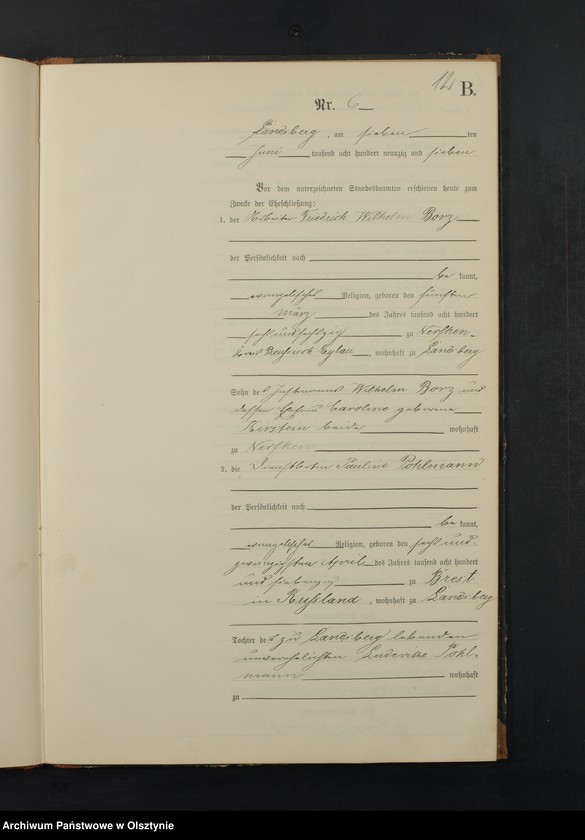 12
B.
Nr. 6
Landsberg, am sieben ten
Juni tausend acht hundert neunzig und sieben
Vor dem unterzeichneten Standesbeamten erschienen heute zum
Zwecke der Eheschließung:
1. der Arbeiter Friedrich Wilhelm Borz
der Persönlichkeit nach
be kannt,
evangelischer Religion, geboren den fünften
März des Jahres tausend acht hundert
sechsundsechzig zu Nerfken
Kreis Preußisch Eylau, wohnhaft zu Landsberg
Sohn des Instmanns Wilhelm Borz und
dessen Ehefrau Caroline geborene
Kirstein beide wohnhaft
zu Nerfken
2. die Dienstbotin Pauline Pohlmann
der Persönlichkeit nach
be kannt,
evangelischer Religion, geboren den sechsund-
zwanzigsten April des Jahres tausend acht hundert
und siebenzig zu Brest
in Rußland, wohnhaft zu Landsberg
Tochter der zu Landsberg lebenden
unverehelichten Pohl-
mann wohnhaft
zu
Archiwum Państwowe w Olsztynie